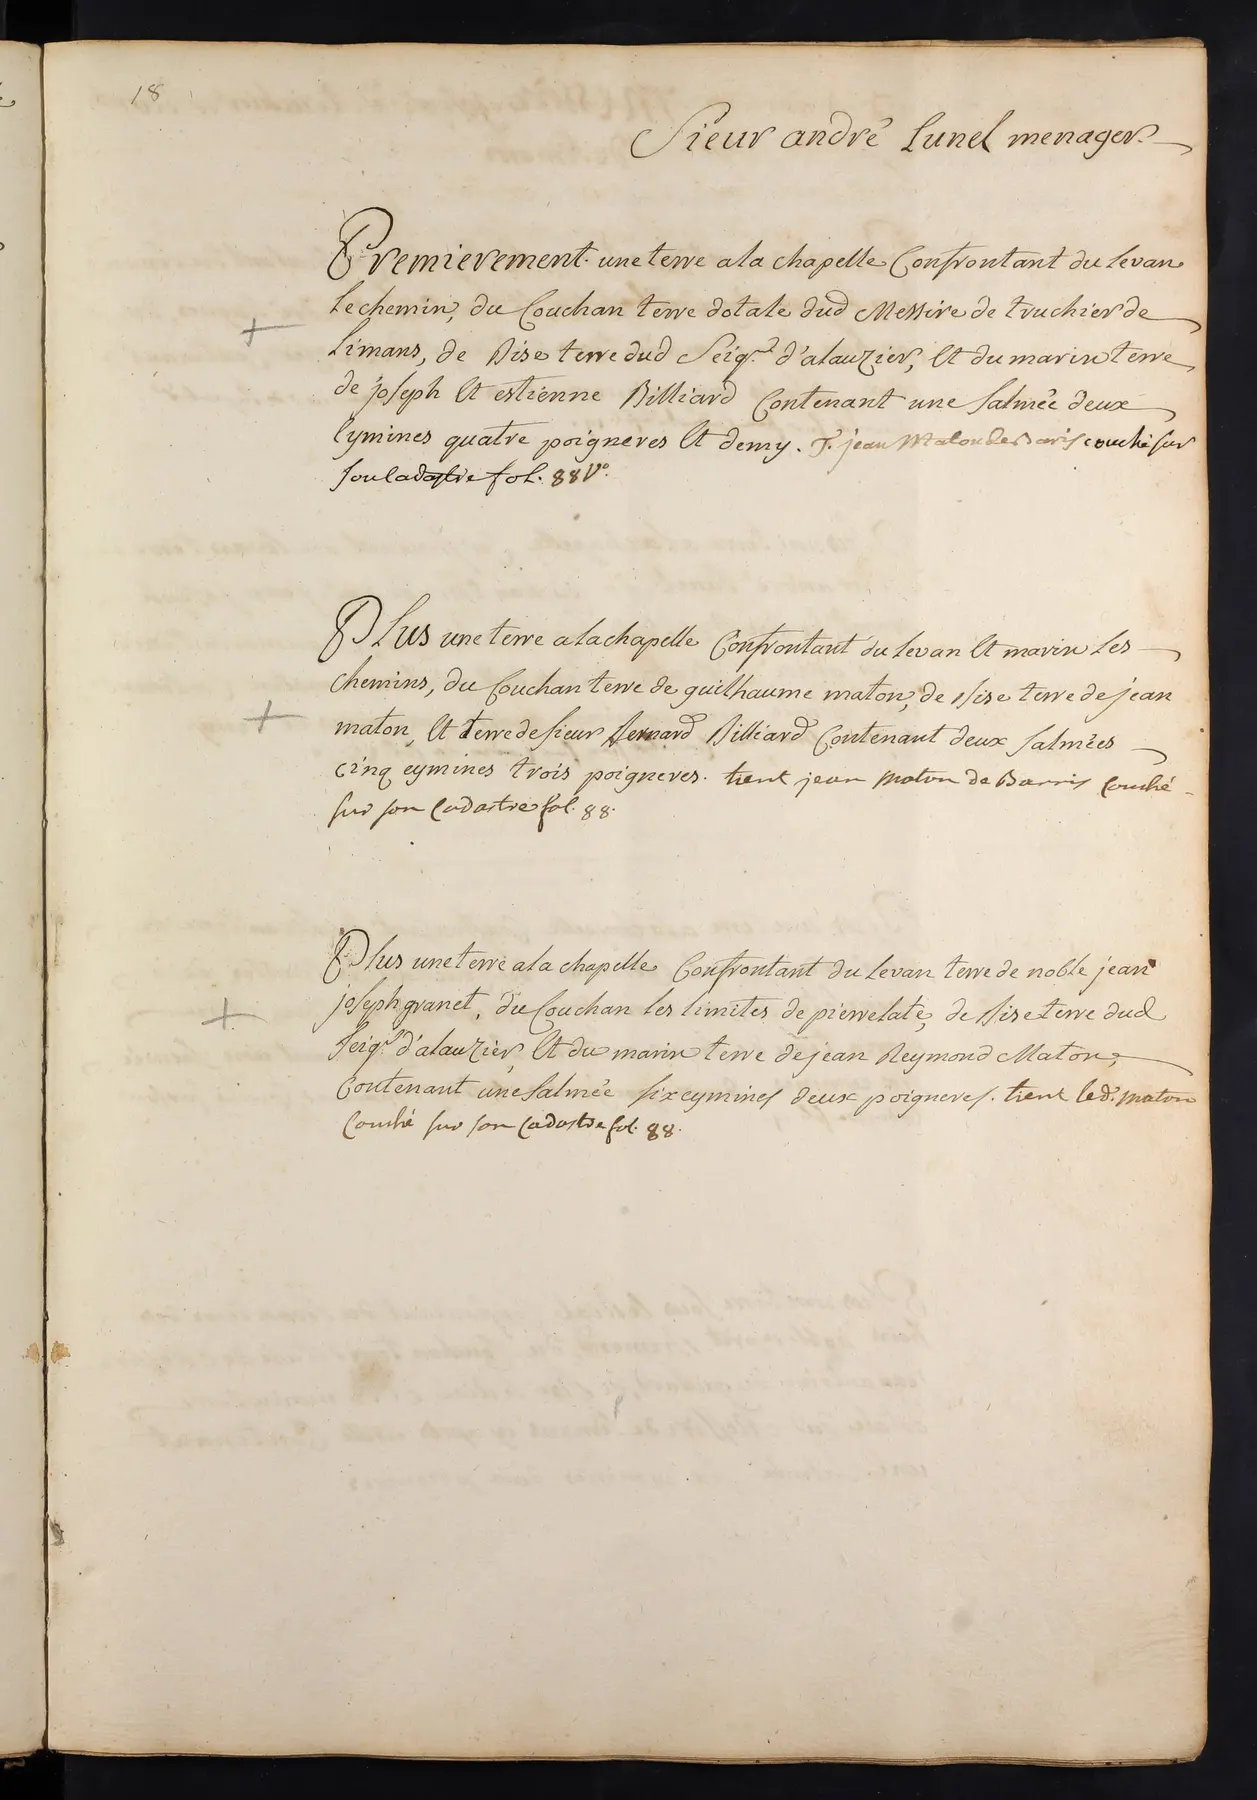 18
Sieur andré Lunel menager
Premierement une terre a la chapelle Confrontant du Levan
Le chemin, du Couchan terre dotale dud Messire de truchier de
Limans, de Bise terre dud Seigr d'alauzier, Et du marin terre
de joseph Et estienne Billiard Contenant une Salmée deux
Eymines quatre poigneres Et demy. T. jean Maton de Baris couché sur
son Cadastre fol. 88 Vo.
Plus une terre a la chapelle Confrontant du Levan Et marin Les
Chemins, du Couchan terre de guilhaume maton, de Bise terre de jean
maton, Et terre de sieur Bernard Billiard Contenant deux Salmées
Cinq eymines trois poigneres. tient jean maton de Barris Couché
sur son Cadastre fol. 88.
Plus une terre a la chapelle Confrontant du Levan terre de noble jean
joseph granet, du Couchan Les Limites de pierrelate, de Bise terre dud
Seigr d'alauzier, Et du marin terre de jean Reymond Maton,
Contenant une Salmée six eymines deux poigneres. tient led. maton
Couché sur son Cadastre fol. 88.